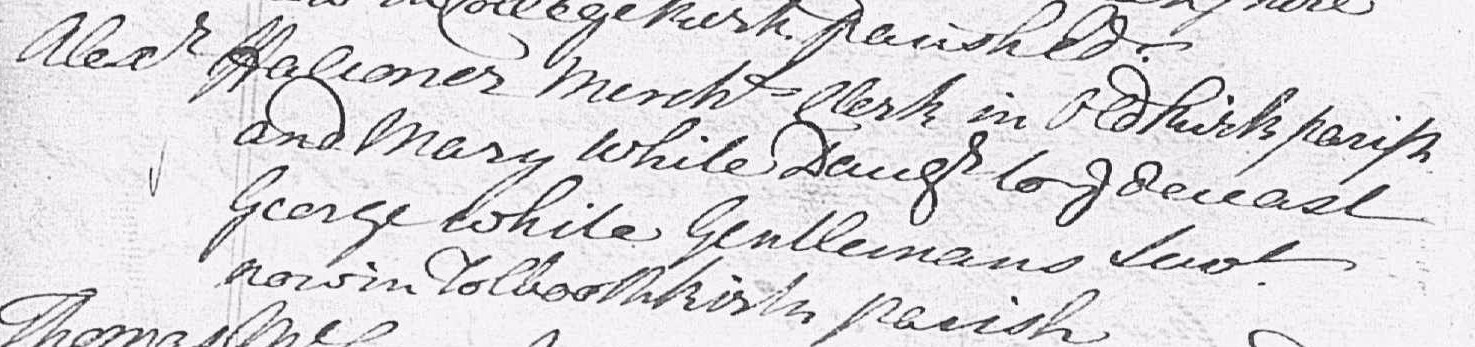 in College kirk parish Ed.
Alexr ffalconer Mercht Clerk in Old kirk parish
and Mary White Daugr to ye deceast
George White Gentlemans Servt
now in Tolbooth kirk parish
Thomas Mc